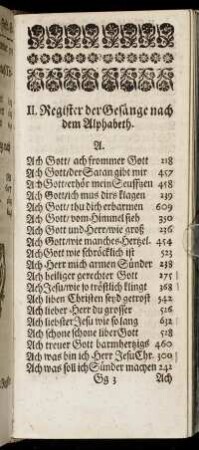 II. Register der Gesänge nach
dem Alphabeth.
A.
Ach Gott/ ach frommer Gott 218
Ach Gott/der Satan gibt mir 457
Ach Gott/erhör mein Seuffzen 458
Ach Gott/ich mus dirs klagen 239
Ach Gott/ thu dich erbarmen 609
Ach Gott/ vom Himmel sieh 350
Ach Gott und Herr/wie groß 236
Ach Gott/wie manches Hertzel. 454
Ach Gott wie schröcklich ist 523
Ach Herr mich armen Sünder 238
Ach heiliger gerechter Gott 275
Ach Jesu/wie so tröstlich klingt 368
Ach liben Christen seyd getrost 542
Ach lieber Herr du grosser 526
Ach liebster Jesu wie so lang 632
Ach schone schone liber Gott 528
Ach treuer Gott barmhertzigs 460
Ach was bin ich Herr Jesu Chr. 300
Ach was soll ich Sünder machen 242
Gg 3 Ach